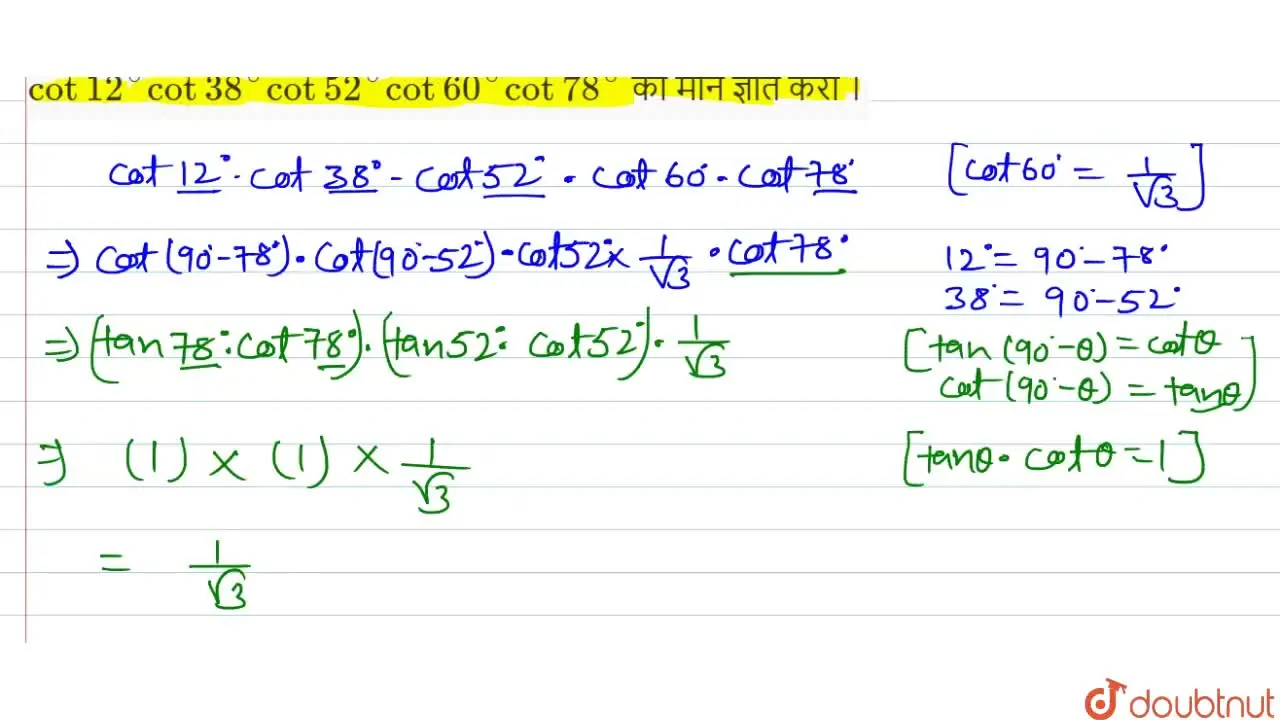 cot 12° cot 38° cot 52° cot 60° cot 78° का मान ज्ञात करा ।
cot 12° · cot 38° - cot 52° · cot 60° · cot 78°
[cot 60° = 1/√3]
⇒ cot (90°-78°) · cot (90°-52°) · cot 52° × 1/√3 · cot 78°
12° = 90° - 78°
38° = 90° - 52°
⇒ (tan 78° · cot 78°) · (tan 52° · cot 52°) · 1/√3
[tan (90° - θ) = cot θ
cot (90° - θ) = tan θ]
⇒ (1) × (1) × 1/√3
[tan θ · cot θ = 1]
= 1/√3
doubtnut